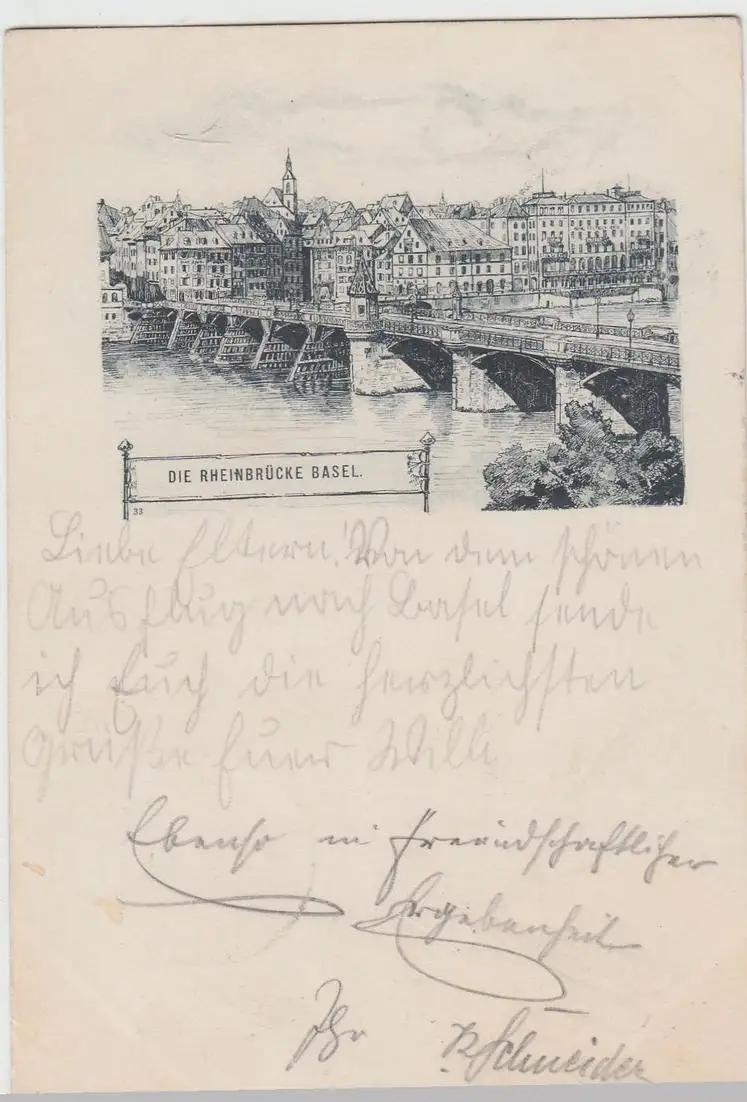 DIE RHEINBRÜCKE BASEL.
33
Liebe Eltern! Von dem schönen
Ausflug nach Basel sende
ich Euch die herzlichsten
Grüße Euer Willi
Ebenso in freundschaftlicher
Ergebenheit
Ihr R Schneider